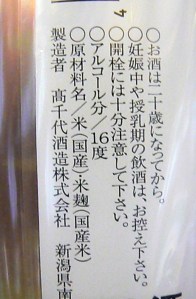 ○お酒は二十歳になってから。
○妊娠中や授乳期の飲酒は、お控え下さい。
○開栓には十分注意して下さい。
○アルコール分/16度
○原材料名/米(国産)米麹(国産米)
製造者 髙千代酒造株式会社 新潟県南